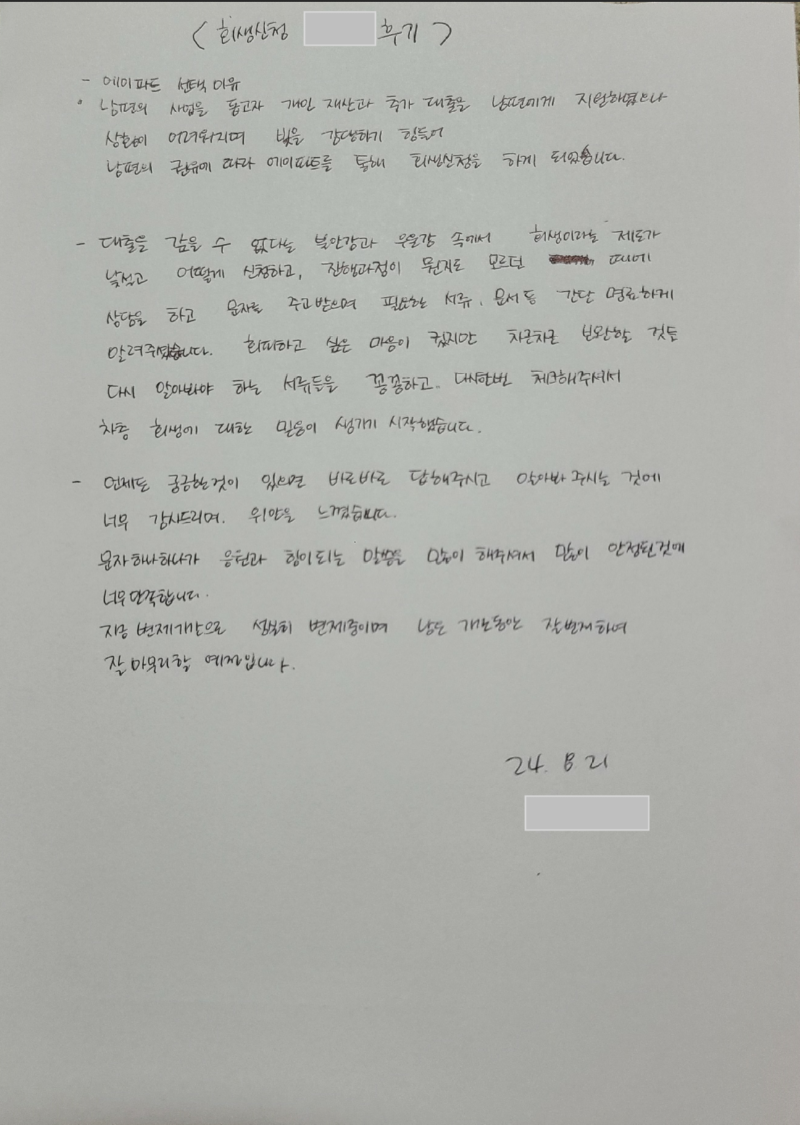 < 회생신청 후기 >
- 에이파트 선택 이유
• 남편의 사업을 돕고자 개인 재산과 추가 대출을 남편에게 지원하였으나
상황이 어려워지며 빚을 감당하기 힘들어
남편의 권유에 따라 에이파트를 통해 회생신청을 하게 되었습니다.
- 대출을 갚을 수 없다는 불안감과 우울감 속에서 회생이라는 제도가
낯설고 어떻게 신청하고, 진행과정이 뭔지도 모르던 때에
상담을 하고 문자를 주고받으며 필요한 서류, 문서 등 간단 명료하게
알려주셨습니다. 회피하고 싶은 마음이 컸지만 차근차근 보완할 것들
다시 알아봐야 하는 서류들을 꼼꼼하고 다시한번 체크해주셔서
차츰 회생에 대한 믿음이 생기기 시작했습니다.
- 언제든 궁금한것이 있으면 바로바로 답해주시고 알아봐 주시는 것에
너무 감사드리며. 위안을 느꼈습니다.
문자 하나하나가 응원과 힘이되는 말씀을 많이 해주셔서 많이 안정된것에
너무 만족합니다.
지금 변제기간으로 성실히 변제중이며 남은 개월동안 잘 변제하여
잘 마무리할 예정입니다.
24. 8. 21